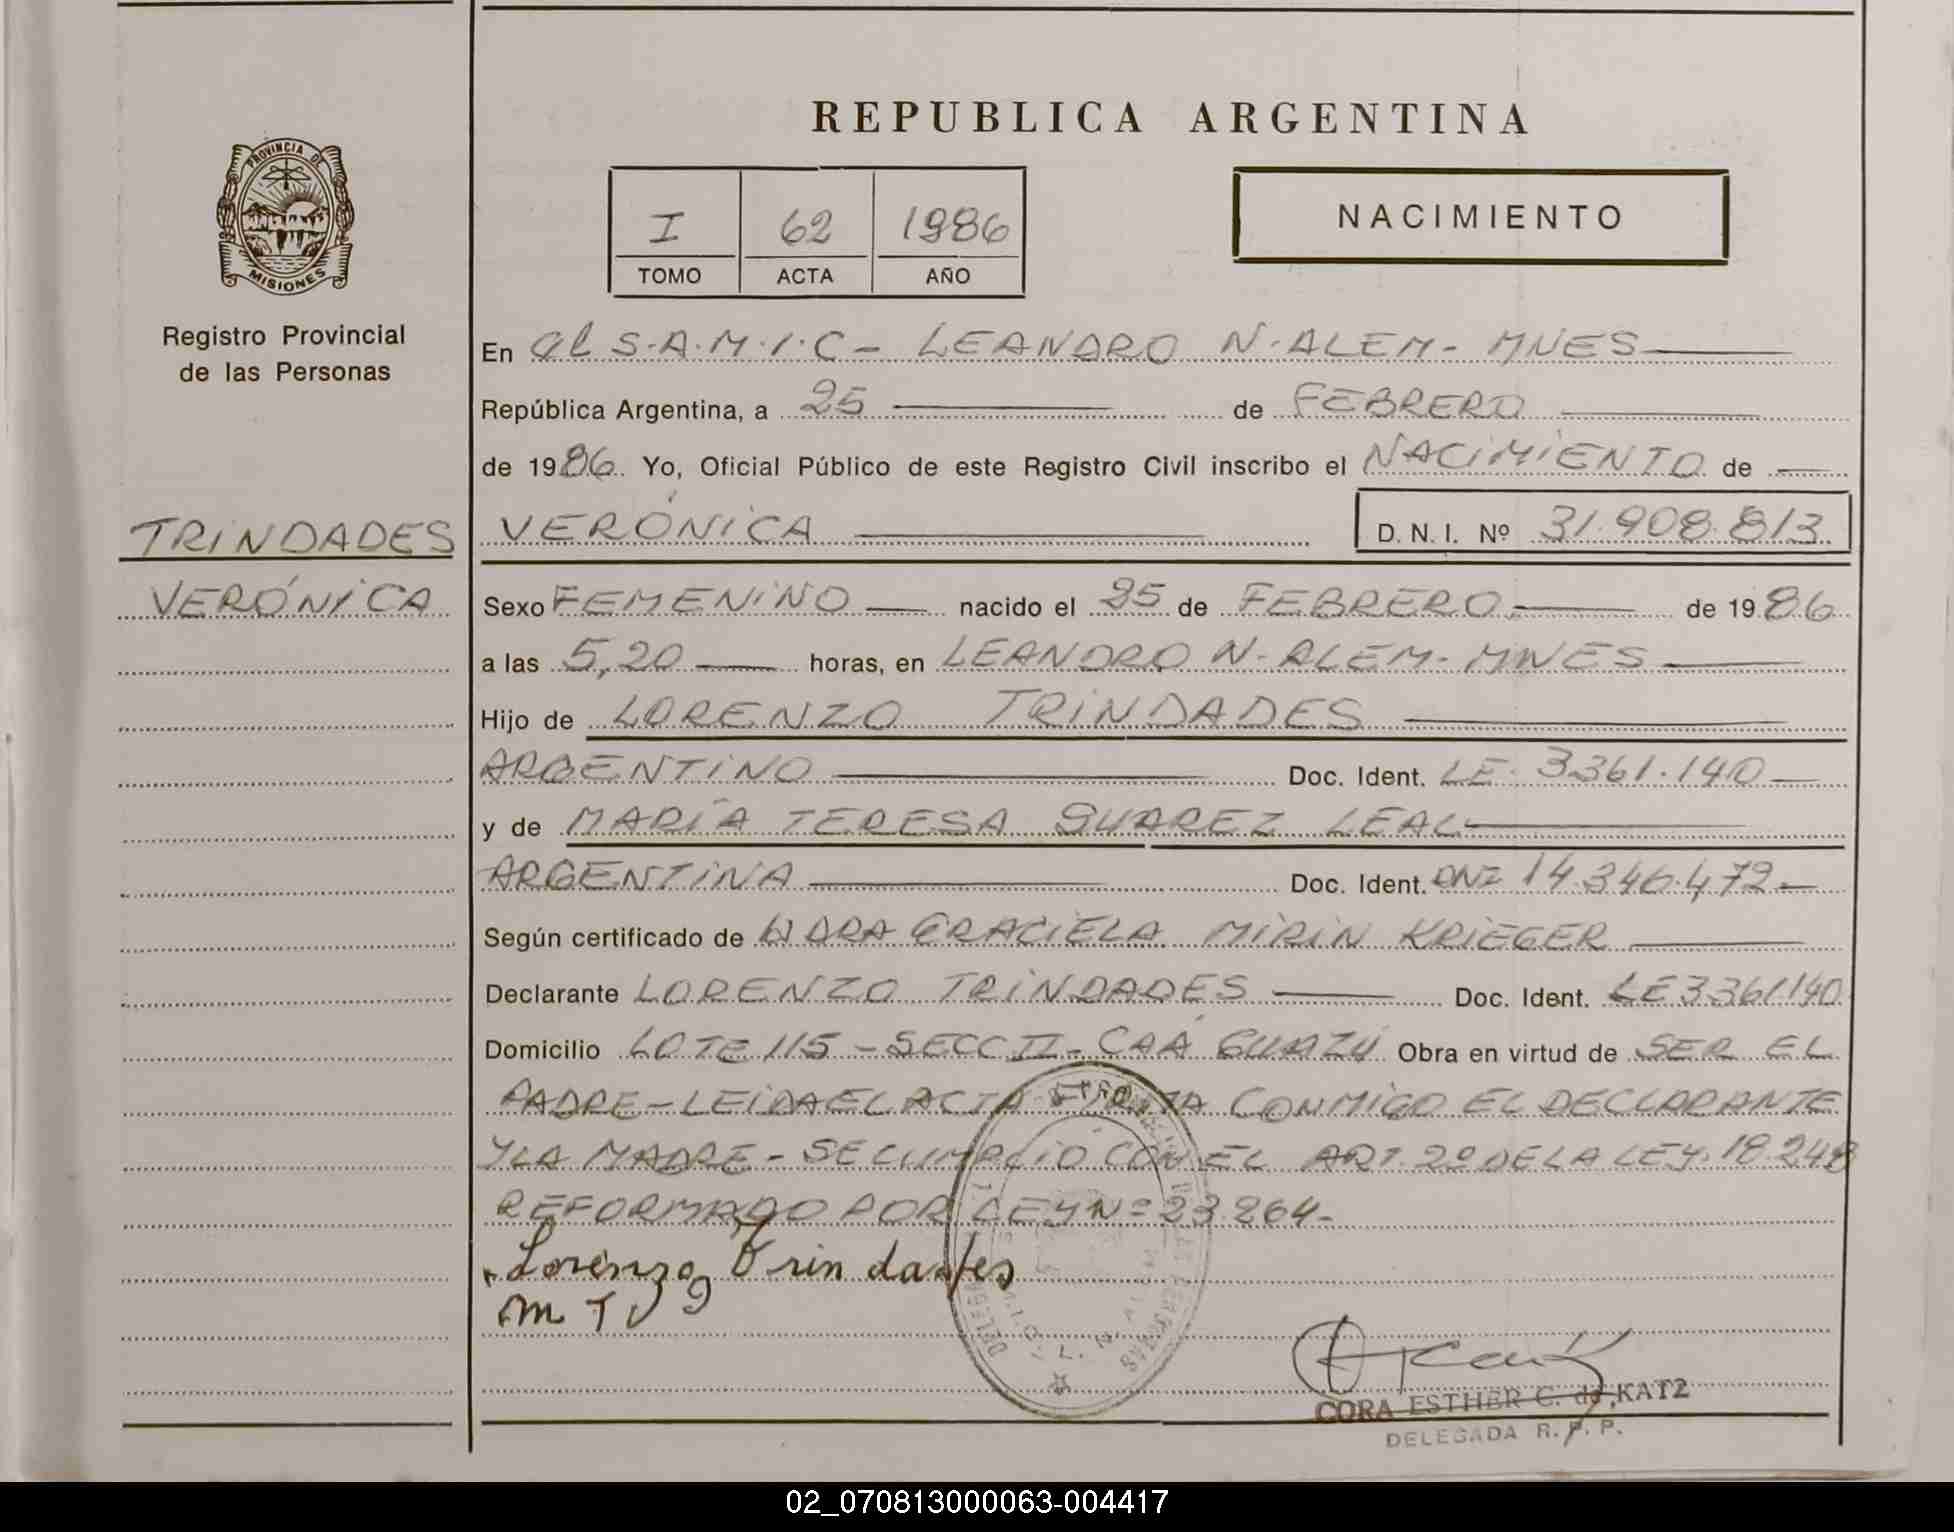 REPUBLICA ARGENTINA
PROVINCIA DE
MISIONES
Registro Provincial
de las Personas
I 62 1986
TOMO ACTA AÑO
NACIMIENTO
En el S.A.M.I.C - LEANDRO N. ALEM - MNES
República Argentina, a 25 de FEBRERO
de 1986. Yo, Oficial Público de este Registro Civil inscribo el NACIMIENTO de
TRINDADES
VERÓNICA D. N. I. Nº 31.908.813
VERÓNICA
Sexo FEMENINO nacido el 25 de FEBRERO de 1986
a las 5,20 horas, en LEANDRO N. ALEM - MNES
Hijo de LORENZO TRINDADES
ARGENTINO Doc. Ident. LE. 3.361.140
y de MARÍA TERESA SUAREZ LEAL
ARGENTINA Doc. Ident. DNI 14.346.472
Según certificado de DORA GRACIELA MIRIN KRIEGER
Declarante LORENZO TRINDADES Doc. Ident. LE 3361140
Domicilio LOTE 115 - SECC II - CAÁ GUAZÚ Obra en virtud de SER EL
PADRE - LEIDA EL ACTA LA FIRMA CONMIGO EL DECLARANTE
Y LA MADRE - SE CUMPLIÓ CON EL ART. 2º DE LA LEY. 18.248
REFORMADO POR LEY Nº 23.264 -
Lorenzo Trindades
CORA ESTHER C. de KATZ
DELEGADA R. P. P.
02_070813000063-004417